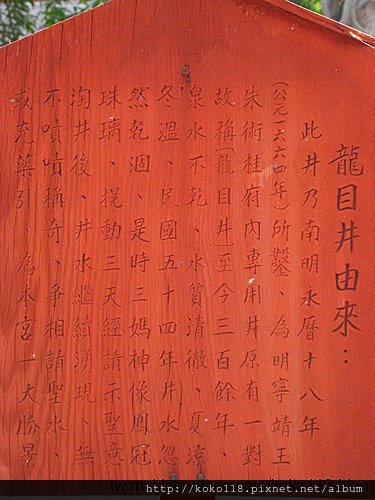 龍目井由來：
此井乃南明永曆十八年
(公元一六六四年)所鑿、為明寧靖王
朱術桂府內專用井原有一對
故稱(龍目井)至今三百餘年、
泉水不乾、水質清徹、夏涼
冬溫、民國五十四年井水忽
然乾涸、是時三媽神像鳳冠
珠璃、搖動三天經請示聖意
淘井後、井水繼續湧現、無
不嘖嘖稱奇、爭相請聖水、
或充藥引、為本宮一大勝景
http://kokol18.pixnet.net/album